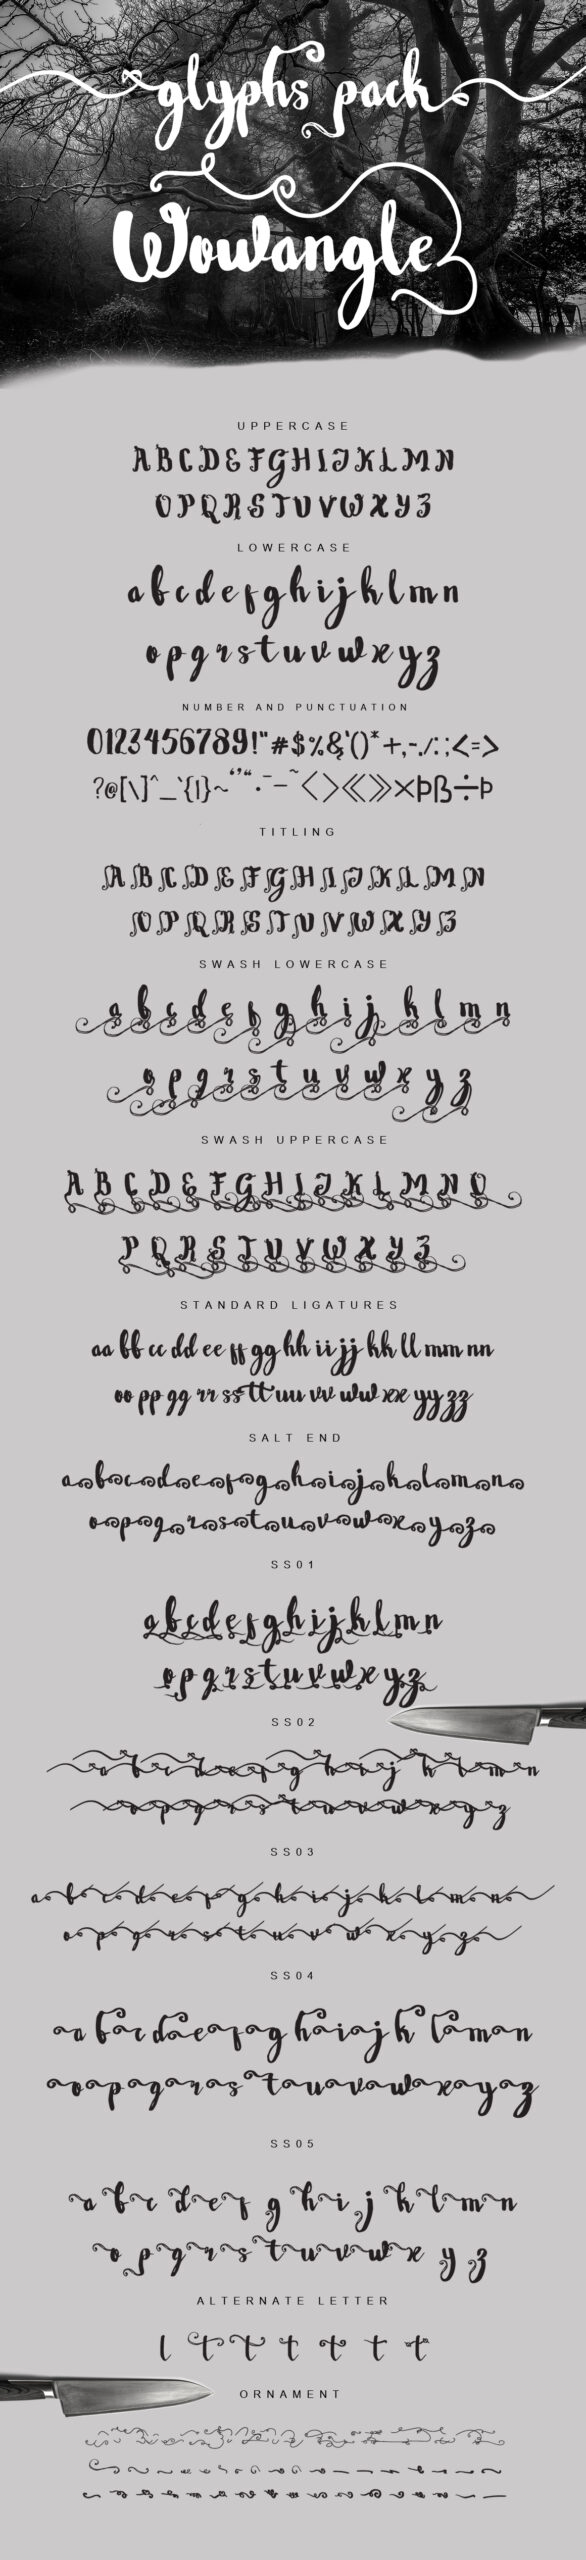 glyphs pack
Wowangle
UPPERCASE
ABCDEFGHIJKLMN
OPQRSTUVWXYZ
LOWERCASE
abcdefghijklmn
opqrstuvwxyz
NUMBER AND PUNCTUATION
0123456789!"#$%&'()*+,-./:;<=>
?@[\]^_`{|}~“”‘’•–—˜‹›«»×Þß÷þ
TITLING
ABCDEFGHIJKLMN
OPQRSTUVWXYZ
SWASH LOWERCASE
abcdefghijklmn
opqrstuvwxyz
SWASH UPPERCASE
ABCDEFGHIJKLMNO
PQRSTUVWXYZ
STANDARD LIGATURES
aa bb cc dd ee ff gg hh ii jj kk ll mm nn
oo pp qq rr ss tt uu vv ww xx yy zz
SALT END
abcdefghijklmno
opqrstuvwxyz
SS01
abcdefghijklmn
opqrstuvwxyz
SS02
abcdefghijklmn
opqrstuvwxyz
SS03
abcdefghijklmn
opqrstuvwxyz
SS04
abcdefghijklmn
opqrstuvwxyz
SS05
abcdefghijklmn
opqrstuvwxyz
ALTERNATE LETTER
l t t t t t t
ORNAMENT